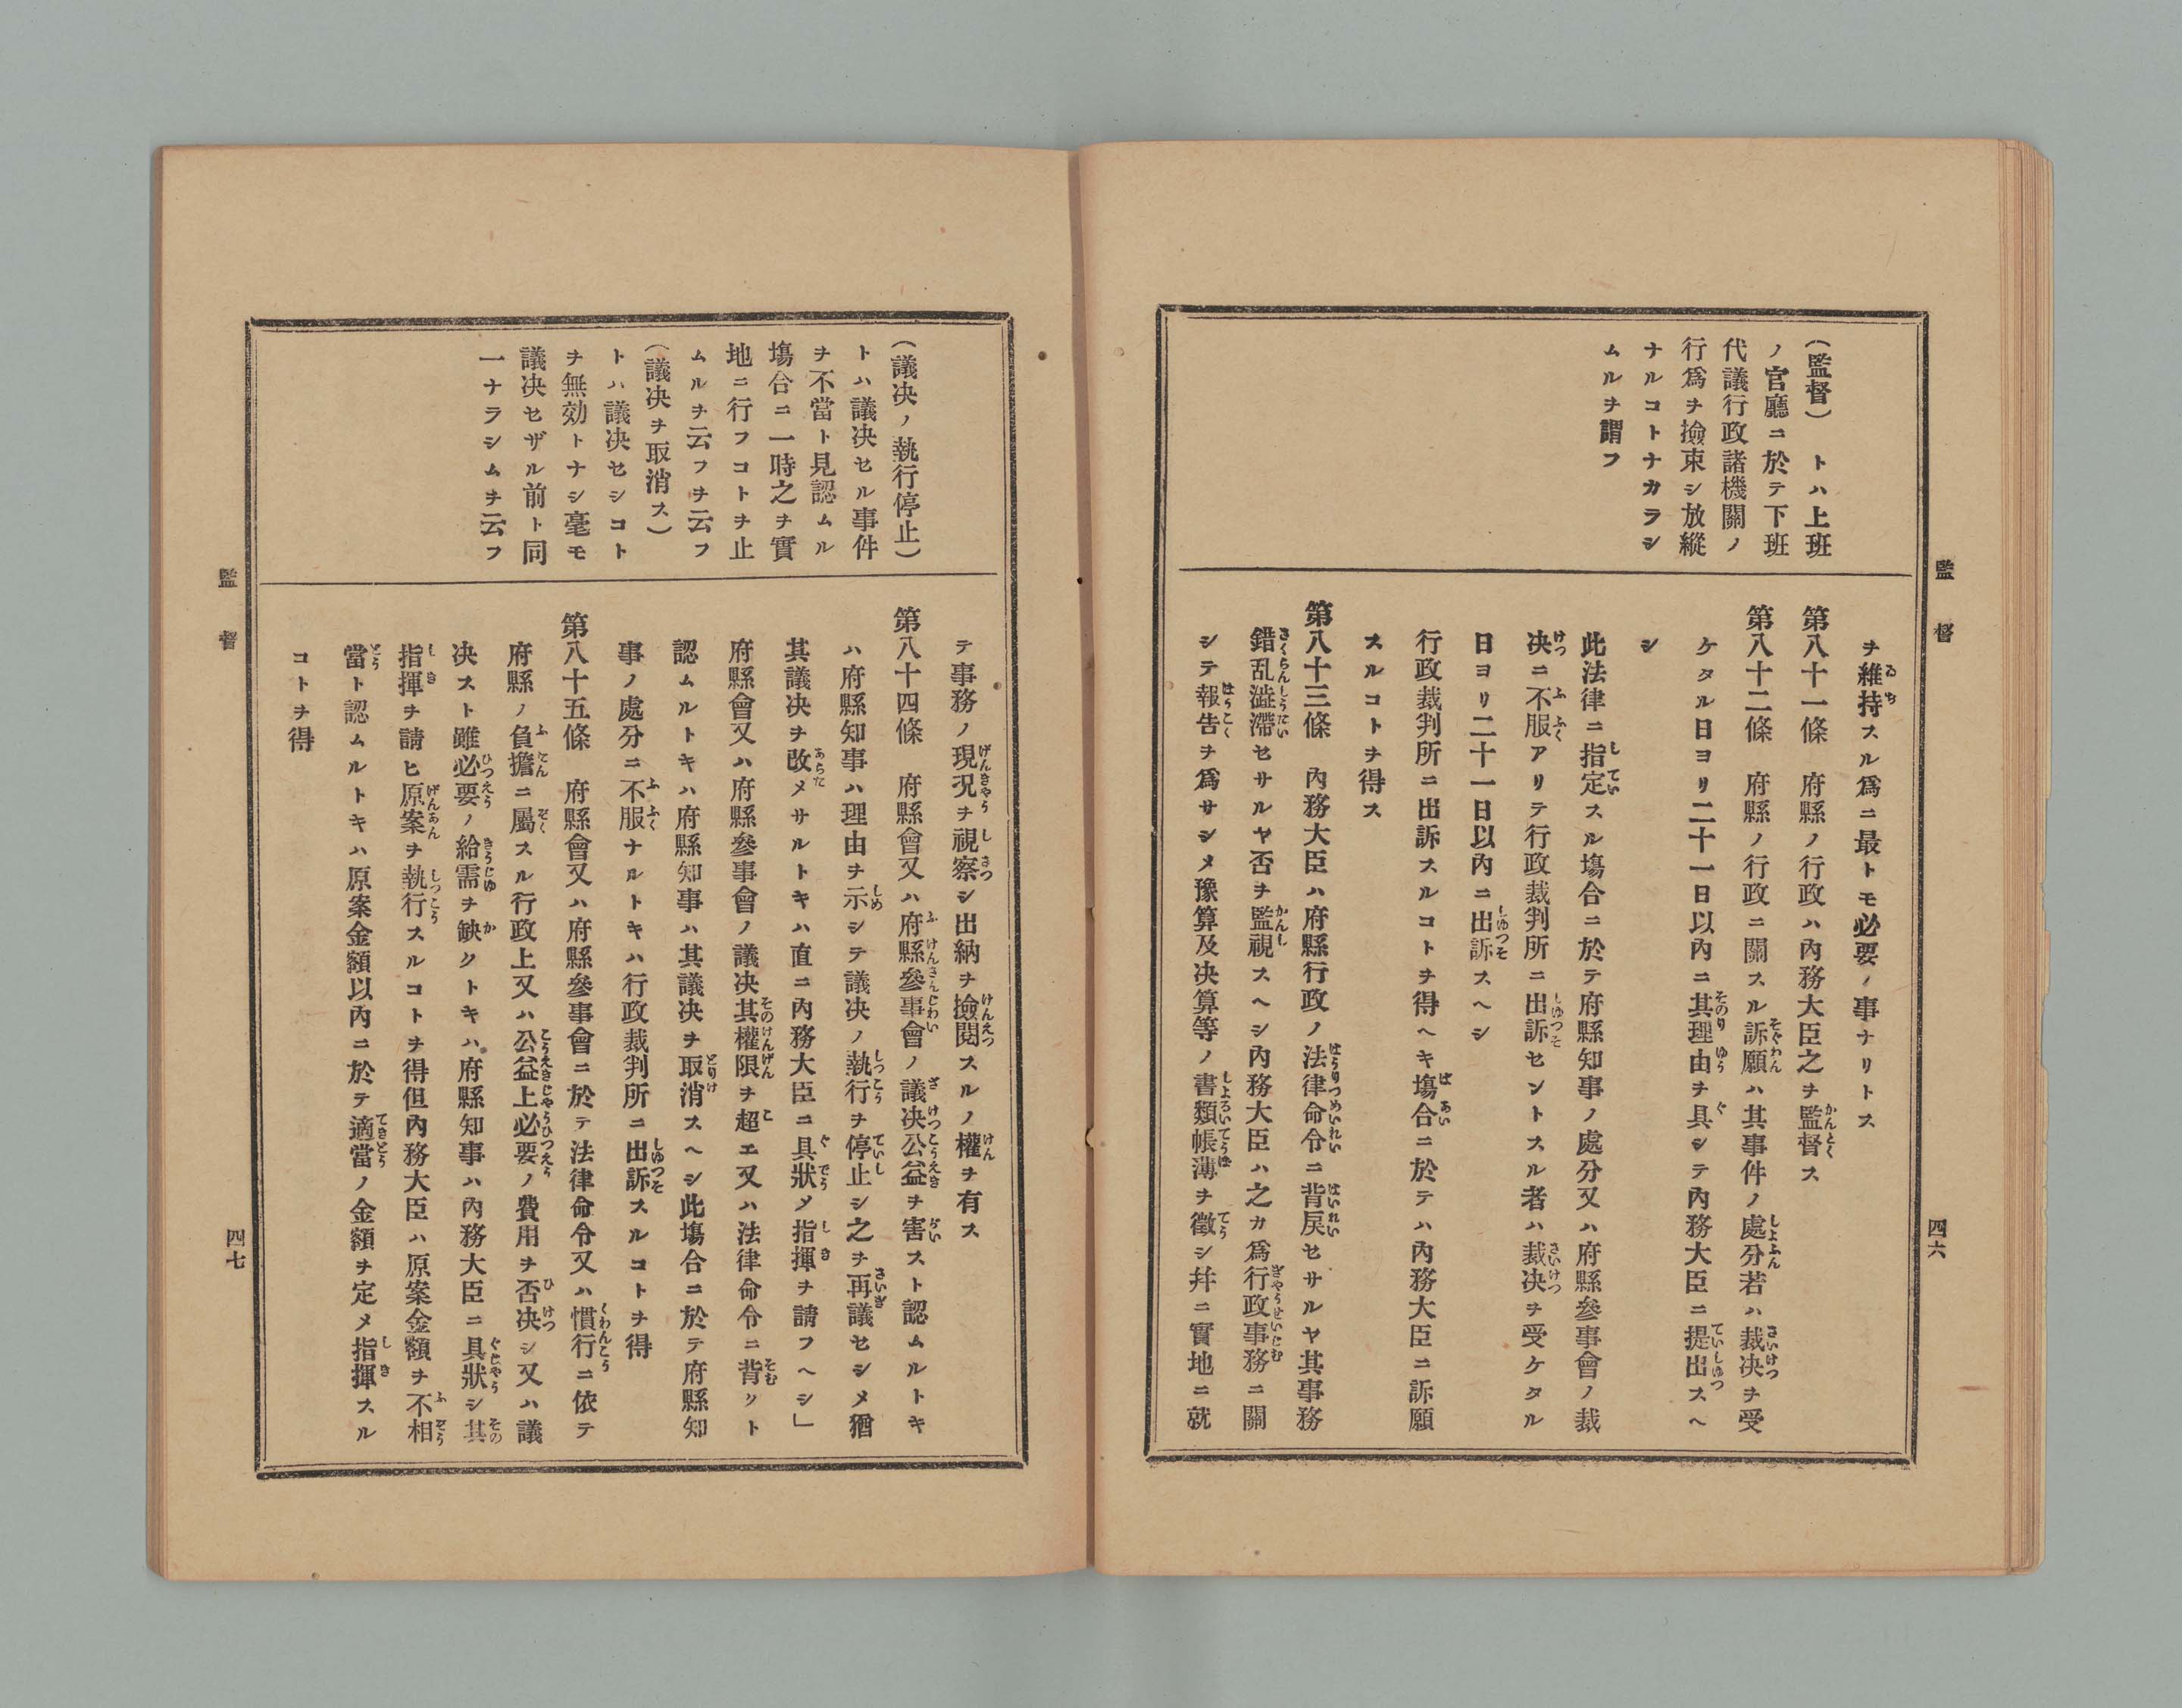 監督
四六
（監督）　トハ上班
ノ官廳ニ於テ下班
代議行政諸機關ノ
行爲ヲ撿束シ放縱
ナルコトナカラシ
ムルヲ謂フ
ヲ維持スル爲ニ最トモ必要ノ事ナリトス
第八十一條　府縣ノ行政ハ內務大臣之ヲ監督ス
第八十二條　府縣ノ行政ニ關スル訴願ハ其事件ノ處分若ハ裁决ヲ受
ケタル日ヨリ二十一日以內ニ其理由ヲ具シテ內務大臣ニ提出スヘ
シ
此法律ニ指定スル塲合ニ於テ府縣知事ノ處分又ハ府縣參事會ノ裁
决ニ不服アリテ行政裁判所ニ出訴セントスル者ハ裁决ヲ受ケタル
日ヨリ二十一日以內ニ出訴スヘシ
行政裁判所ニ出訴スルコトヲ得ヘキ塲合ニ於テハ內務大臣ニ訴願
スルコトヲ得ス
第八十三條　內務大臣ハ府縣行政ノ法律命令ニ背戾セサルヤ其事務
錯乱澁滯セサルヤ否ヲ監視スヘシ內務大臣ハ之カ爲行政事務ニ關
シテ報告ヲ爲サシメ豫算及决算等ノ書類帳薄ヲ徵シ幷ニ實地ニ就
（議决ノ執行停止）
トハ議决セル事件
ヲ不當ト見認ムル
塲合ニ一時之ヲ實
地ニ行フコトヲ止
ムルヲ云フヲ云フ
（議决ヲ取消ス）
トハ議决セシコト
ヲ無効トナシ毫モ
議决セザル前ト同
一ナラシムヲ云フ
テ事務ノ現况ヲ視察シ出納ヲ撿閱スルノ權ヲ有ス
第八十四條　府縣會又ハ府縣參事會ノ議决公益ヲ害スト認ムルトキ
ハ府縣知事ハ理由ヲ示シテ議决ノ執行ヲ停止シ之ヲ再議セシメ猶
其議决ヲ改メサルトキハ直ニ內務大臣ニ具狀メ指揮ヲ請フヘシ」
府縣會又ハ府縣參事會ノ議决其權限ヲ超エ又ハ法律命令ニ背クト
認ムルトキハ府縣知事ハ其議决ヲ取消スヘシ此塲合ニ於テ府縣知
事ノ處分ニ不服ナルトキハ行政裁判所ニ出訴スルコトヲ得
第八十五條　府縣會又ハ府縣參事會ニ於テ法律命令又ハ慣行ニ依テ
府縣ノ負擔ニ屬スル行政上又ハ公益上必要ノ費用ヲ否决シ又ハ議
决スト雖必要ノ給需ヲ缺クトキハ府縣知事ハ內務大臣ニ具狀シ其
指揮ヲ請ヒ原案ヲ執行スルコトヲ得但內務大臣ハ原案金額ヲ不相
當ト認ムルトキハ原案金額以內ニ於テ適當ノ金額ヲ定メ指揮スル
コトヲ得
監督
四七